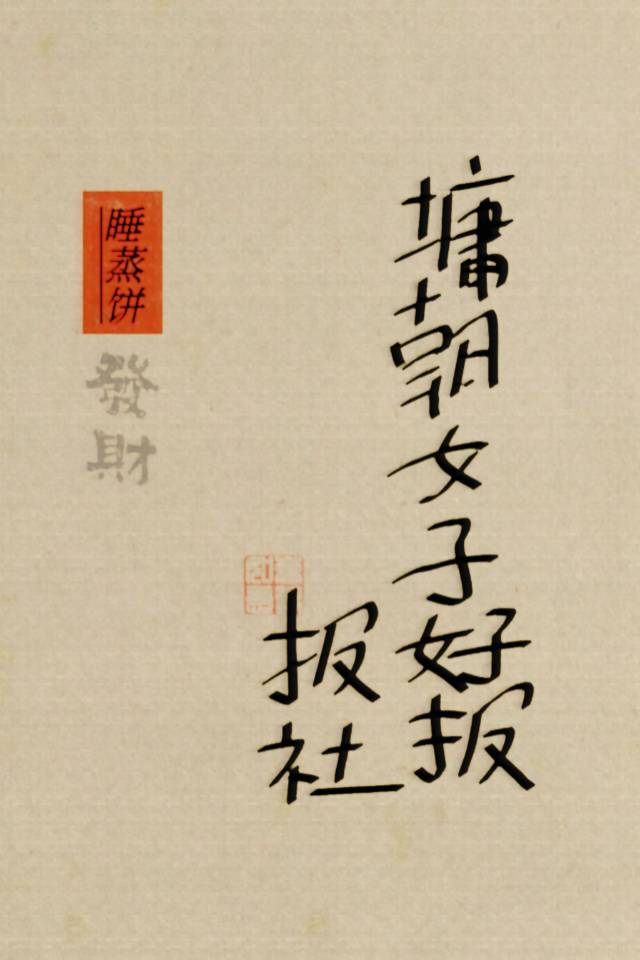 墉朝女子好报
报社
睡蒸饼
發財